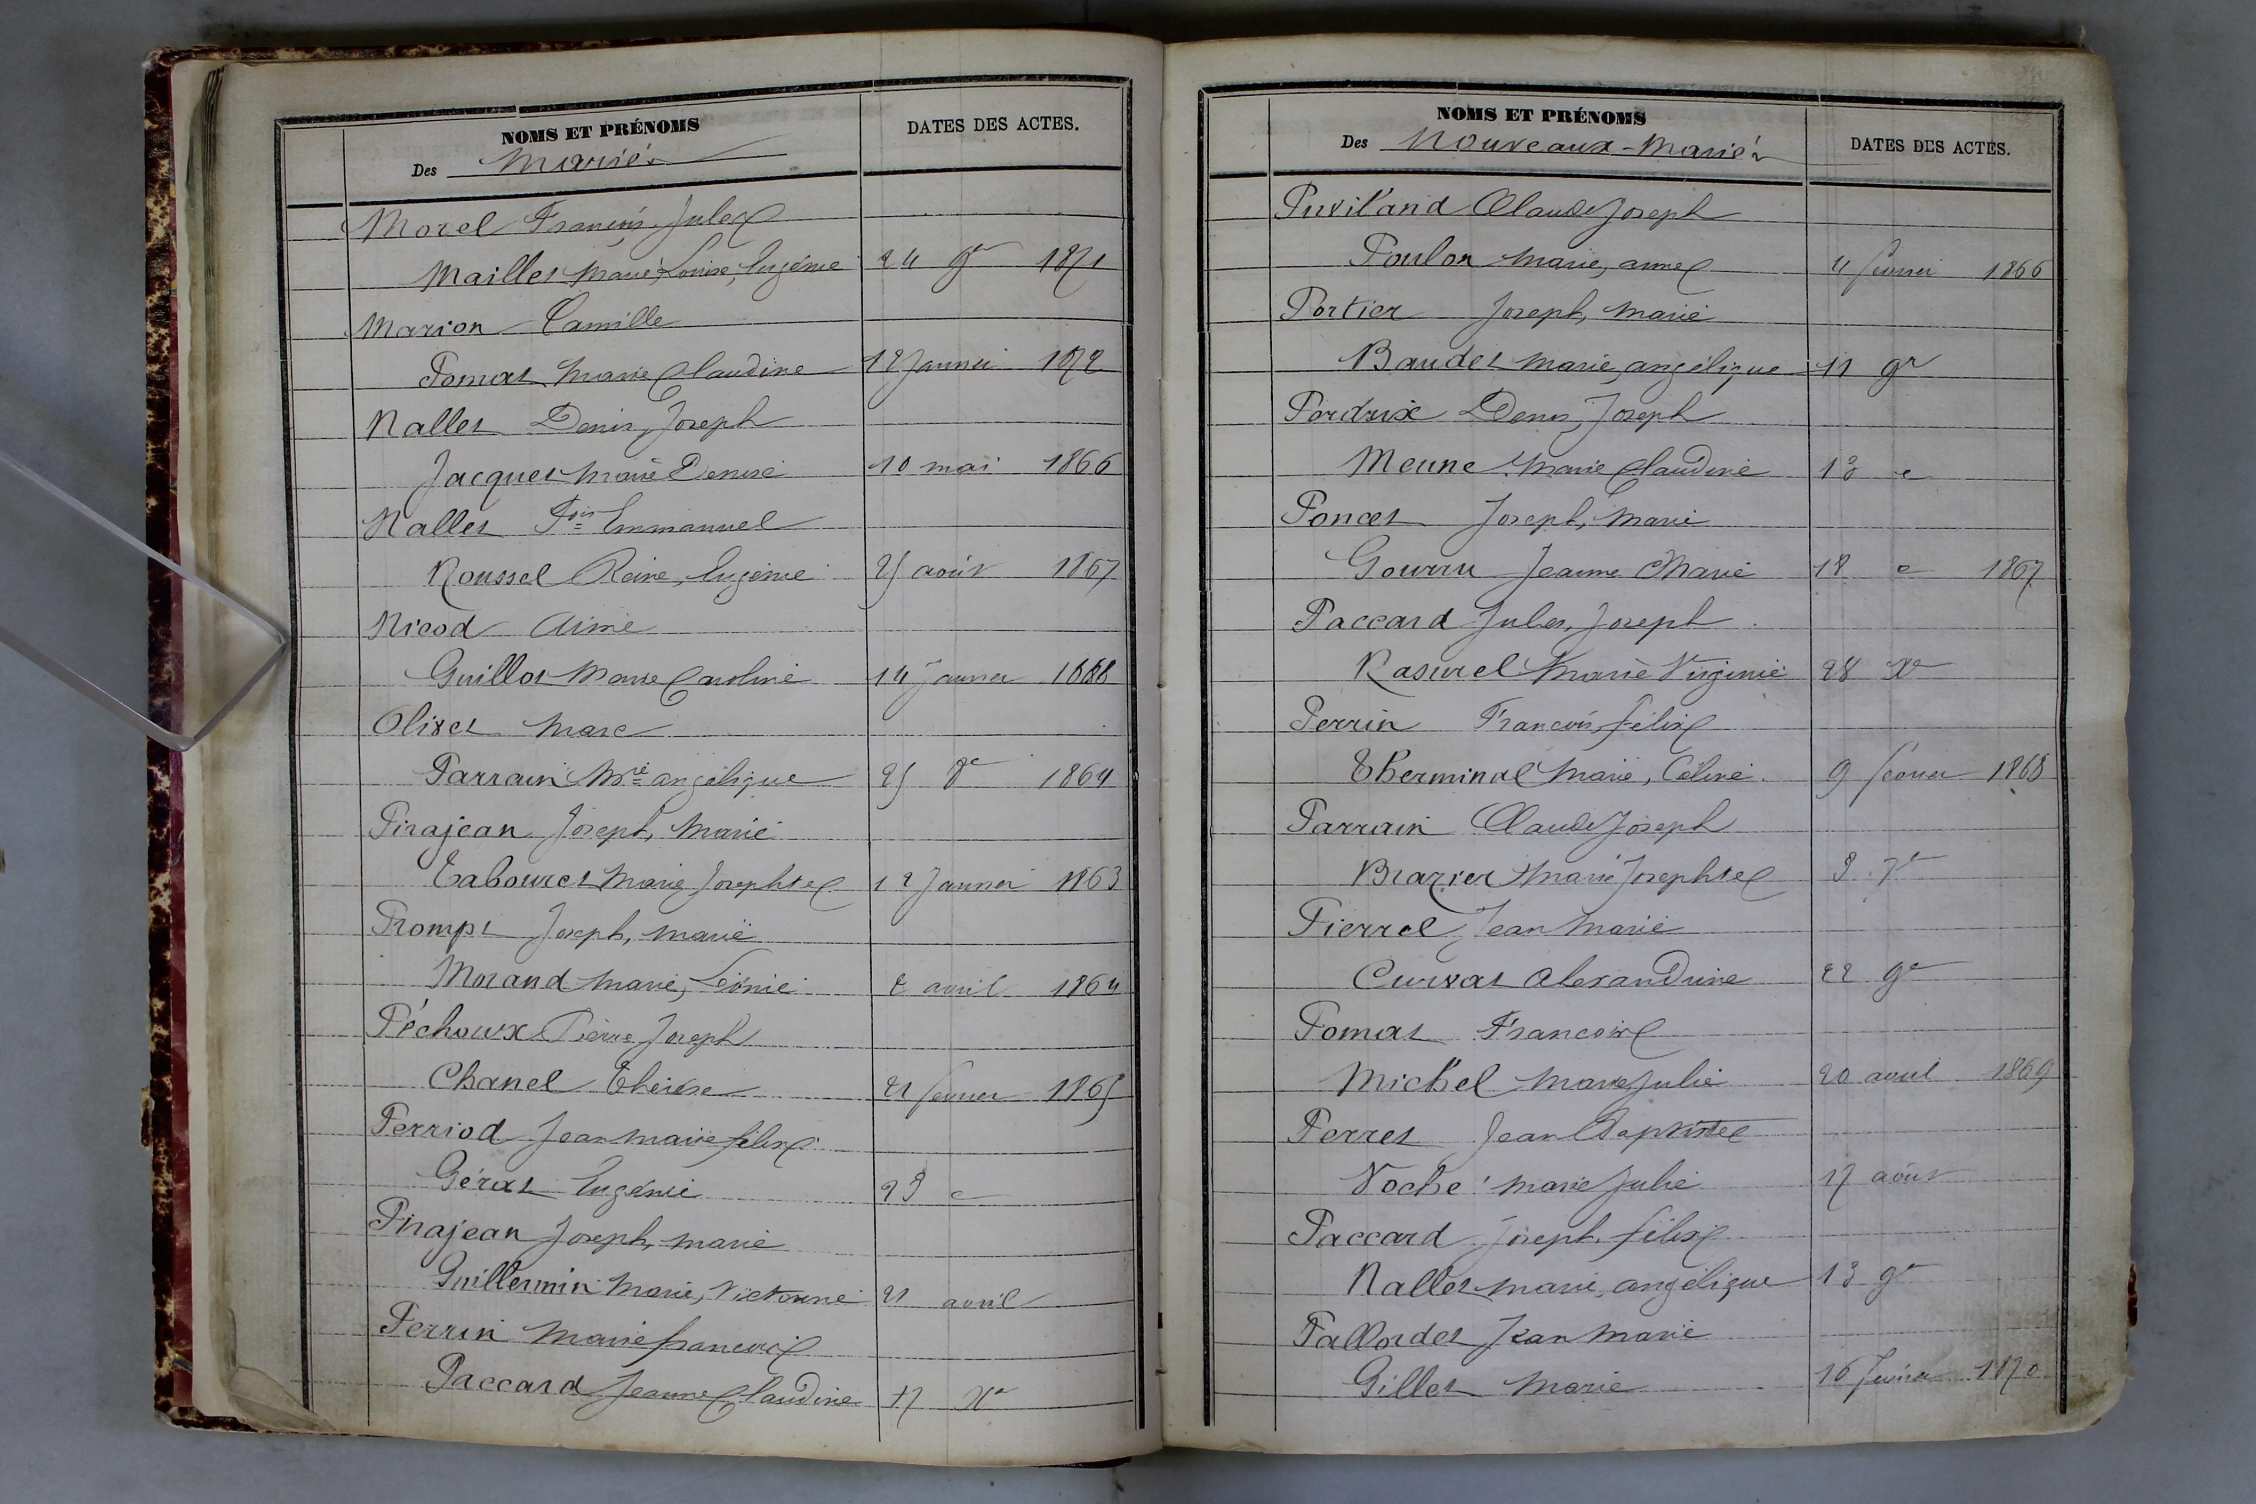 NOMS ET PRÉNOMS
Des Mariés
DATES DES ACTES.
Morel François Jules
Maillet Marie, Louise, Eugénie 24 9re 1871
Marion Camille
Pomat Marie Claudine 12 Janvier 1872
Nallet Denis, Joseph
Jacquet Marie Denise 10 mai 1866
Nallet Fois Emmanuel
Roussel Reine, Eugénie 25 août 1867
Nicod Aimé
Guillot Marie Caroline 14 Janvier 1868
Olivet Marc
Parrain Mie angélique 25 8e 1864
Pirajean Joseph, Marie
Tabouret Marie Josephte 12 Janvier 1863
Prompt Joseph, Marie
Morand Marie, Léonie 2 avril 1864
Péchoux Pierre Joseph
Chanel Thérèse 21 février 1865
Perriod Jean Marie félix
Gérat Eugénie 23 e
Pirajean Joseph, Marie
Guillermin Marie, Victorine 21 avril
Perrin Marie françois
Paccard Jeanne Claudine 17 Xe
NOMS ET PRÉNOMS
Des Nouveaux-Mariés
DATES DES ACTES.
Puviland Claude Joseph
Poulon Marie, anne 4 février 1866
Portier Joseph, Marie
Baudet Marie, angélique 11 9r
Perdrix Denis, Joseph
Meune Marie Claudine 10 e
Poncet Joseph, Marie
Gourru Jeanne Marie 18 e 1867
Paccard Jules, Joseph
Rasurel Marie Virginie 28 Xe
Perrin François, félix
Therminal Marie, Céline 9 février 1868
Parrain Claude Joseph
Brazier Marie Josephte 3 7e
Pierrel Jean Marie
Curvat Alexandrine 22 9e
Pomat François
Michel Marie Julie 20 avril 1869
Perret Jean Baptiste
Voche Marie Julie 17 août
Paccard Joseph, félix
Nallet Marie, angélique 13 9e
Pallordet Jean Marie
Gillet Marie 16 février 1870